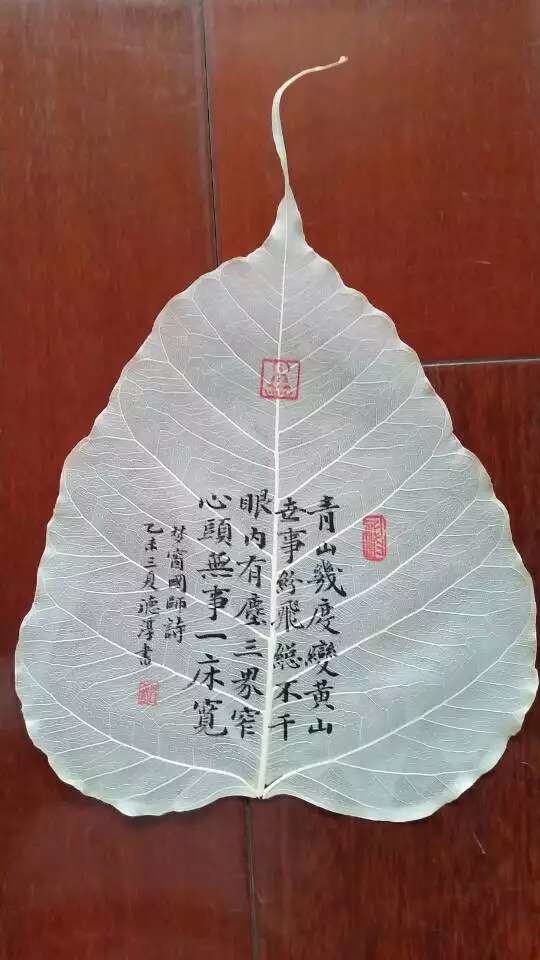 青山幾度變黃山
世事紛飛總不干
眼内有塵三界窄
心頭無事一床寬
梦窗國師詩
乙未三夏德淳書